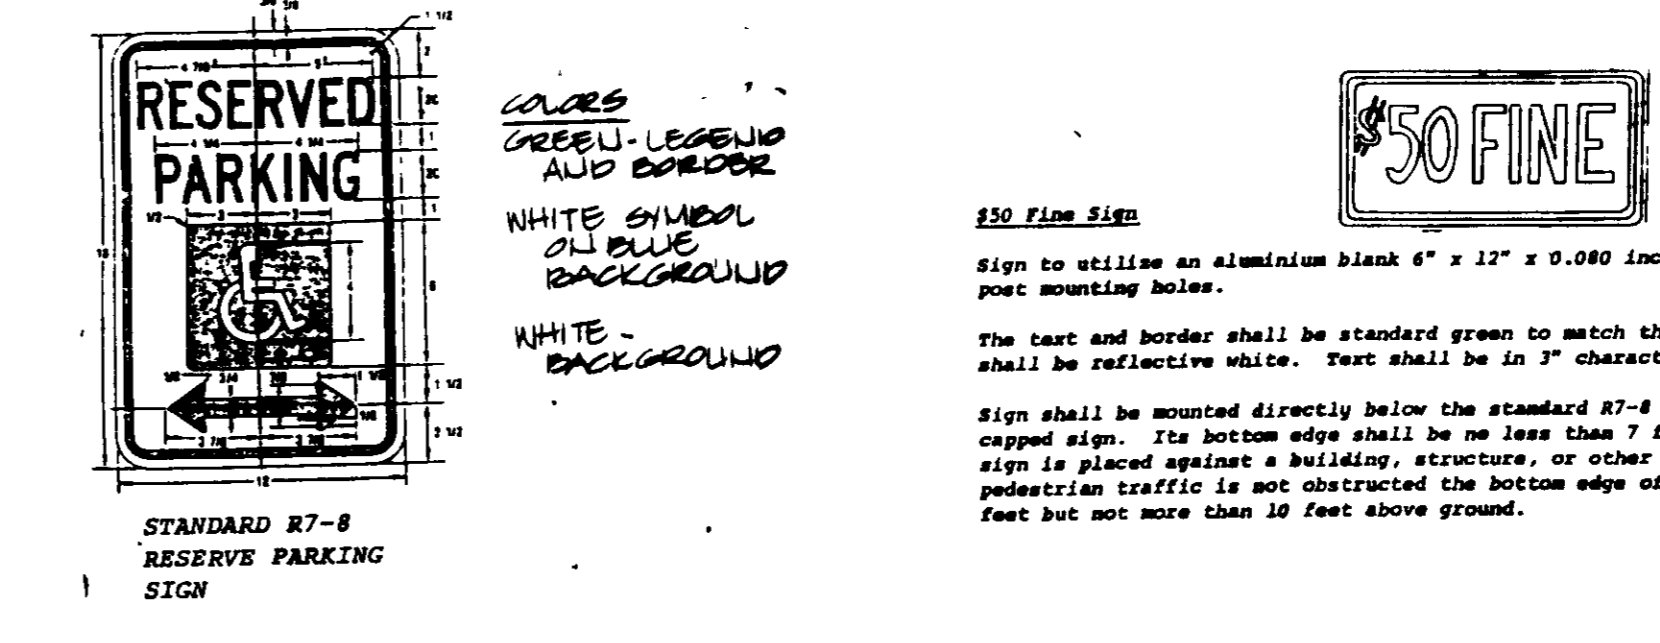 1 1/2
2
4 7/8
5
RESERVED
2C
1
4 1/4
4 1/4
PARKING
2C
1
1/2
3
3
18
4
6
3/4
7/8
1 1/2
1/2
2 1/2
12
STANDARD R7-8
RESERVE PARKING
SIGN
COLORS
GREEN-LEGEND
AND BORDER
WHITE SYMBOL
ON BLUE
BACKGROUND
WHITE -
BACKGROUND
$50 FINE
$50 Fine Sign
Sign to utilize an aluminium blank 6" x 12" x 0.080 inc
post mounting holes.
The text and border shall be standard green to match th
shall be reflective white. Text shall be in 3" charact
Sign shall be mounted directly below the standard R7-8
capped sign. Its bottom edge shall be no less than 7 f
sign is placed against a building, structure, or other
pedestrian traffic is not obstructed the bottom edge of
feet but not more than 10 feet above ground.